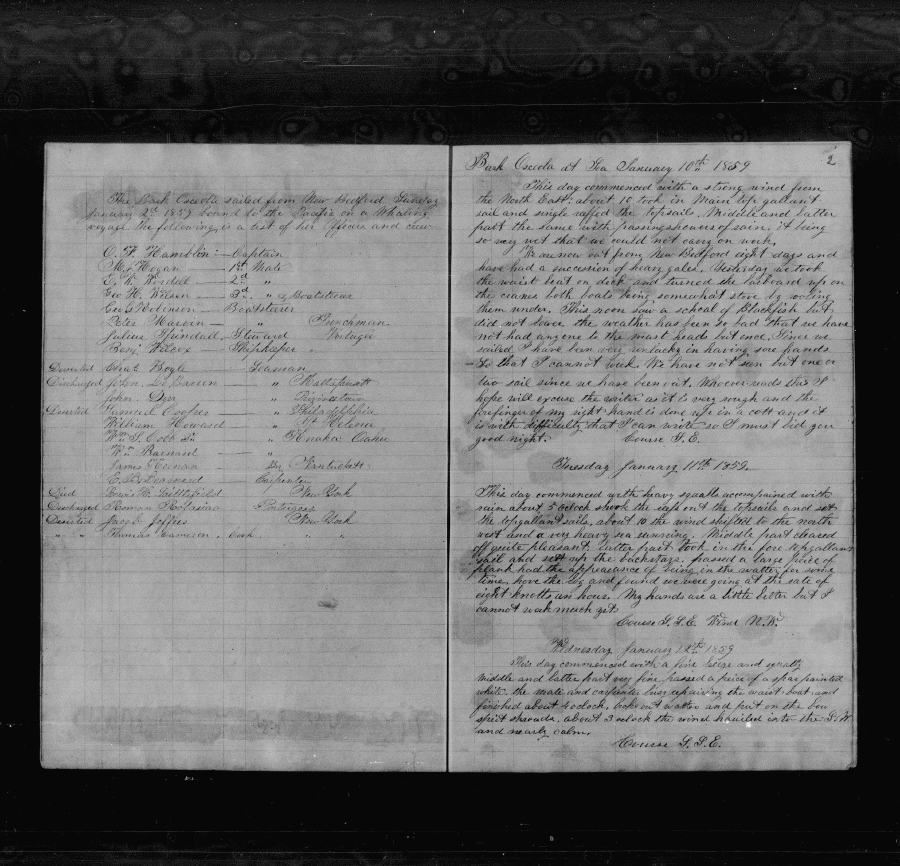 The Bark Osceola sailed from New Bedford Sunday
January 2nd 1859 bound to the Pacific on a Whaling
voyage the following is a list of her Officers and crew
O. F. Hamblin Captain
Mr Hogan 1st Mate
2d "
Geo H. Wilson 3d " & Boatsteerer
Geo Robinson Boatsteerer
Peter Marvin " Frenchman
Julius Steward Portugee
Benj Wilcox Shipkeeper "
Deserted Chas Boyle Seaman
Discharged John " Mattapoisett
John Dyer " Provincetown
Deserted Samuel Cooper " Philadelphia
William Howard " St Helena
Wm S. Cobb " Kanaka Oahu
Wm Barnard "
James Do Nantucket
E. Carpenter
Died Littlefield New York
Discharged Portugees
Deserted Jacob Jeffres New York
" " Thomas Cameron Cook " "
2
Bark Osceola at Sea January 10th 1859
This day commenced with a strong wind from
the North East: about 10 took in Main top gallant
sail and single reefed the topsails. Middle and latter
part the same with passing showers of rain, it being
so very wet that we could not carry on work.
We are now out from New Bedford eight days and
have had a succession of heavy gales. Yesterday we took
the waist boat on deck and turned the larboard up on
the cranes both boats being somewhat stove by rolling
them under. This noon saw a school of Blackfish but
did not lower the weather has been so bad that we have
not had anyone to the mast heads but once. Since we
sailed I have been very unlucky in having sore hands
so that I cannot work. We have not seen but one or
two sail since we have been out. Whoever reads this I
hope will excuse the writer as it is very rough and the
forefinger of my right hand is done up in a cott and it
is with difficulty that I can write so I must bid you
good night. Course S.E.
Tuesday January 11th 1859.
This day commenced with heavy squalls accompained with
rain about 5 oclock shook the reefs out the topsails and set
the topgallant sails, about 10 the wind shifted to the north
west and a very heavy sea running. Middle part cleared
off quite pleasant, latter part took in the fore topgallant
sail and set up the backstays. passed a large peice of
plank had the appearance of being in the watter for some
time, hove the log and found we were going at the rate of
eight knotts an hour. My hands are a little better but I
cannot work much yet.
Course S.S.E. Wind N.W.
Wednesday January 12th 1859
This day commenced with a fine breeze and squally
middle and latter part very fine passed a peice of a spar painted
white. the mate and carpenter busy repairing the waist boat and
finished about 4 oclock, broke out watter and put on the bow
sprit shrouds. about 3 oclock the wind hauled in to the S.W
and nearly calm.
Course S.S.E.